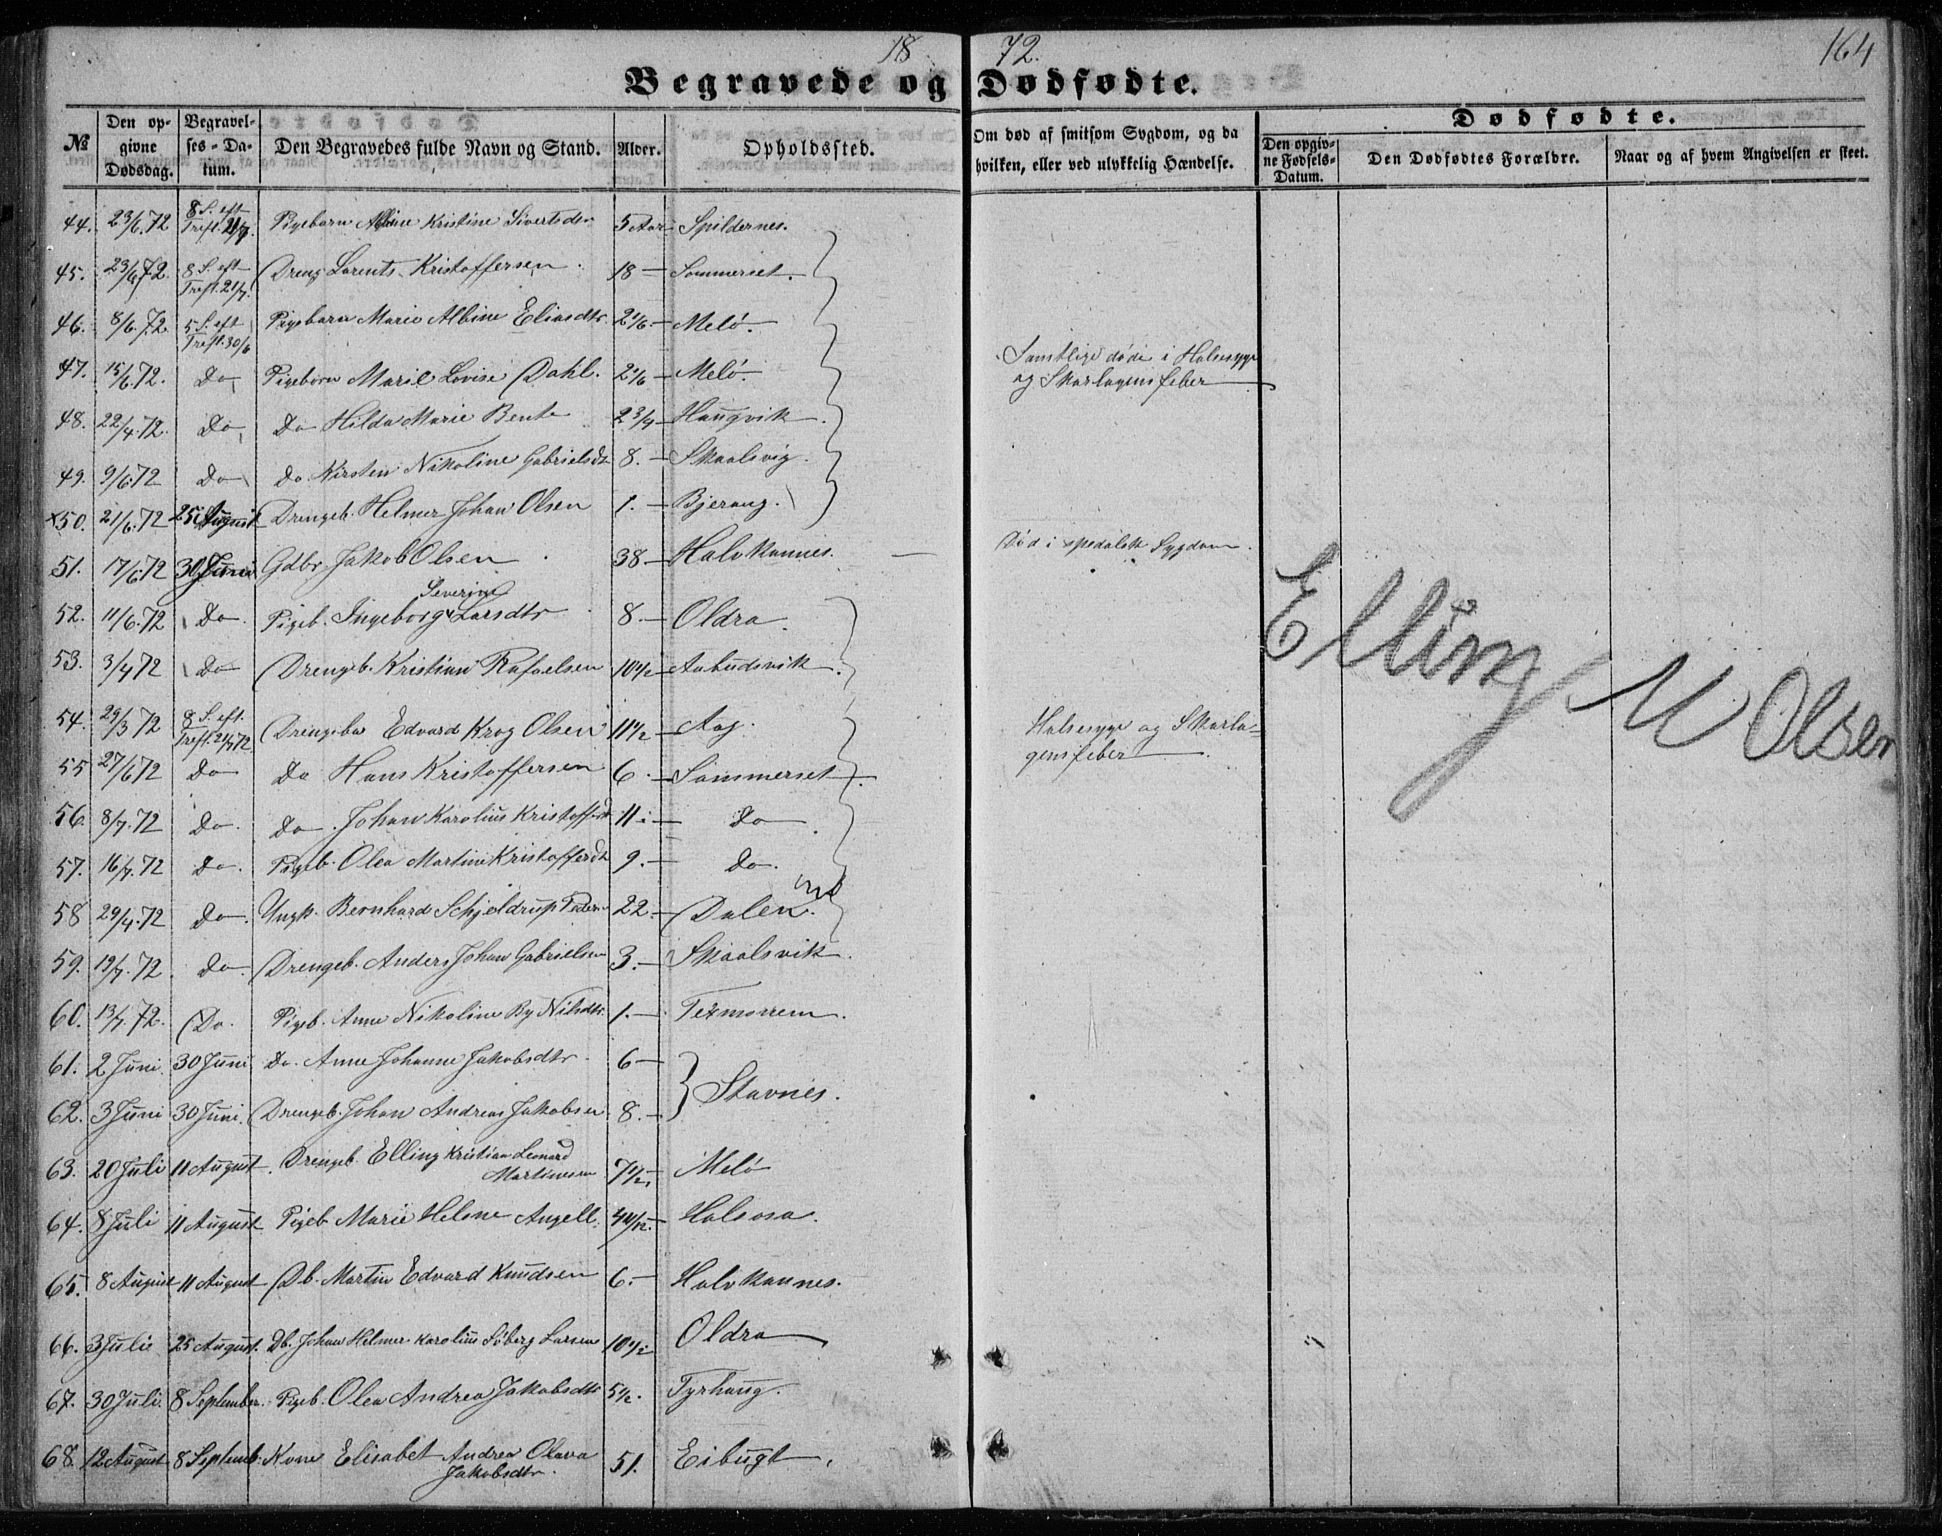 1872.
164
Begravede og Dødfødte.
No
Den opgivne Dødsdag.
Begravelses-Datum.
Den Begravedes fulde Navn og Stand.
Alder.
Opholdssted.
Om død af smitsom Sygdom, og da hvilken, eller ved ulykkelig Hændelse.
Dødfødte.
Den opgivne Fødsels-Datum.
Den Dødfødtes Forældre.
Naar og af hvem Angivelsen er skeet.
44. 23/6.72 8 S. eft Tref. 21/7. Pigebarn Kristine Sivertsdtr 5 Aar Spildernes.
45. 23/6 72. 8 S. eft Tref. 21/7. Dreng Lorents Kristoffersen. 18 — Sommerset.
46. 8/6.72. 5 S. eft Tref. 30/6 Pigebarn Marie Albine Eliasdtr 2 1/6 — Melø.
47. 15/6.72. Do Pigebarn Marie Lovise Dahl. 2 1/6 — Melø.
Samtlige døde i Halssyge
og Skarlagensfeber
48. 22/4.72. Do Do Hilda Marie Bent 2 3/4 — Haugvik.
49. 9/6.72 Do Do. Kirsten Nikoline Gabrielsdt 8. — Skaalsvig.
×50. 21/6.72 25 August Drengeb. Helmer Johan Olsen 1. — Bjerang.
51. 17/6.72 30 Juni Gdbr. Jakob Olsen 38 — Halvkannes. — Død i spedalsk Sygdom.
Severine
52. 11/6.72 Do Pigeb. Ingeborg Larsdtr 8. — Oldra.
53. 3/4 72 Do Drengeb. Kristian Rafaelsen 10 1/2 — Aabudsvik.
54. 29/3 72 8 S. eft. Tref. 21/7 72 Drengeba Edvard Krog Olsen 11 1/2 — Aag. Halssyge og Skarla-
gensfeber
55 27/6 72 Do Do Hans Kristoffersen 6. — Sommerset
56. 8/7.72 Do. Do. Johan Karolius Kristoffers 11 — Do
57. 16/7.72 Do. Pigeb. Olea Martine Kristofferdt 9. — Do.
58 29/4.72 Do Ungk. Bernhard Schjeldrup Peder 22. — Dalen.
59. 19/7.72. Do. Drengeb. Anders Johan Gabrielsen 3. — Skaalsvik.
60. 13/7.72. Do. Pigeb. Anne Nikoline By Nilsdtr. 1. — Texmorrem.
61. 2 Juni. 30 Juni Do. Anne Johanne Jakobsdtr. 6 —
Stavnes.
62. 3 Juni 30 Juni. Drengeb. Johan Andreas Jakobsen 8. —
63. 20 Juli 11 August. Drengeb. Elling Kristian Leonard
Martinesen 7 1/2. Melø
64. 8 Juli 11 August Pigeb. Marie Helene Angell. 4 11/12. Halsosa.
65. 8 August 11 August Db. Martin Edvard Knudsen 6. — Halvkannes.
66. 3 Juli 25 August. Db. Johan Helmer Karolius Søberg Larsen 10 1/2 Oldra
67. 30 Juli. 8 September. Pigeb. Olea Andrea Jakobsdtr 5 1/2. Tyrhaug.
68. 12 August 8 Septemb. Kone Elisabet Andrea Olava
Jakobsdtr. 51. Eibugt.
Elling M Olsen